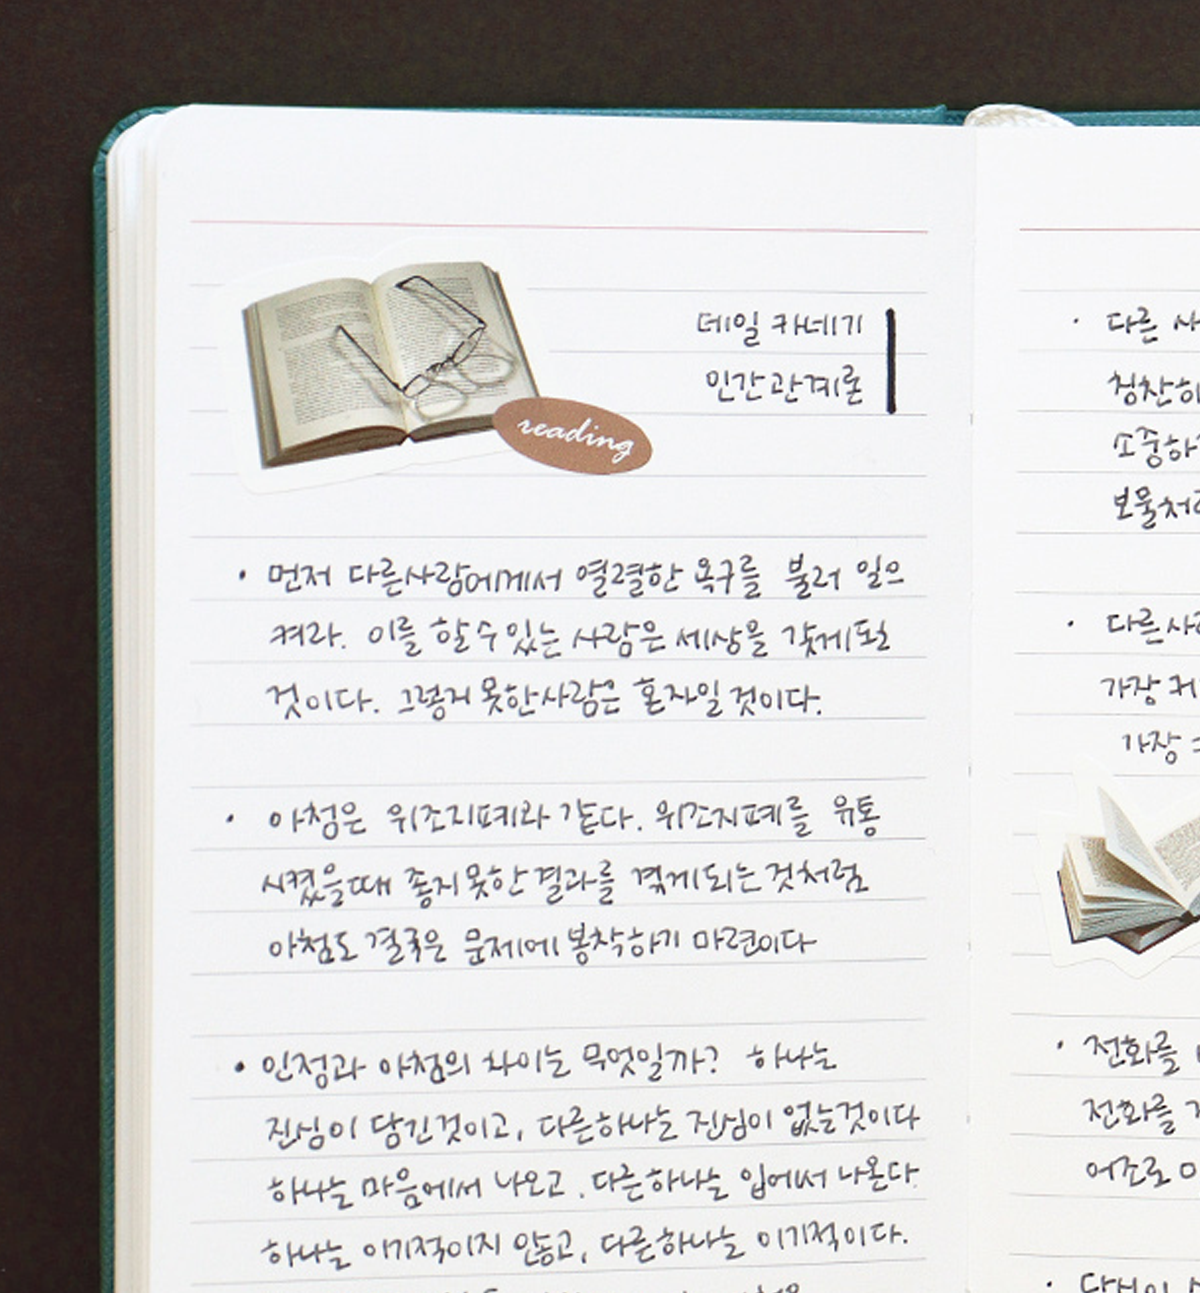 데일 카네기
인간관계론
reading
• 먼저 다른사람에게서 열렬한 욕구를 불러 일으
켜라. 이를 할 수 있는 사람은 세상을 갖게 될
것이다. 그렇지 못한사람은 혼자일 것이다.
• 아첨은 위조지폐와 같다. 위조지폐를 유통
시켰을때 좋지못한 결과를 겪게되는 것처럼
아첨도 결국은 문제에 봉착하기 마련이다
• 인정과 아첨의 차이는 무엇일까? 하나는
진심이 담긴것이고, 다른하나는 진심이 없는것이다
하나는 마음에서 나오고, 다른하나는 입에서 나온다.
하나는 이기적이지 않고, 다른하나는 이기적이다.
• 다른
칭찬하
소중하
보물처
• 다른사
가장 귀
가장
• 전화를
전화를
어조로
• 당신이